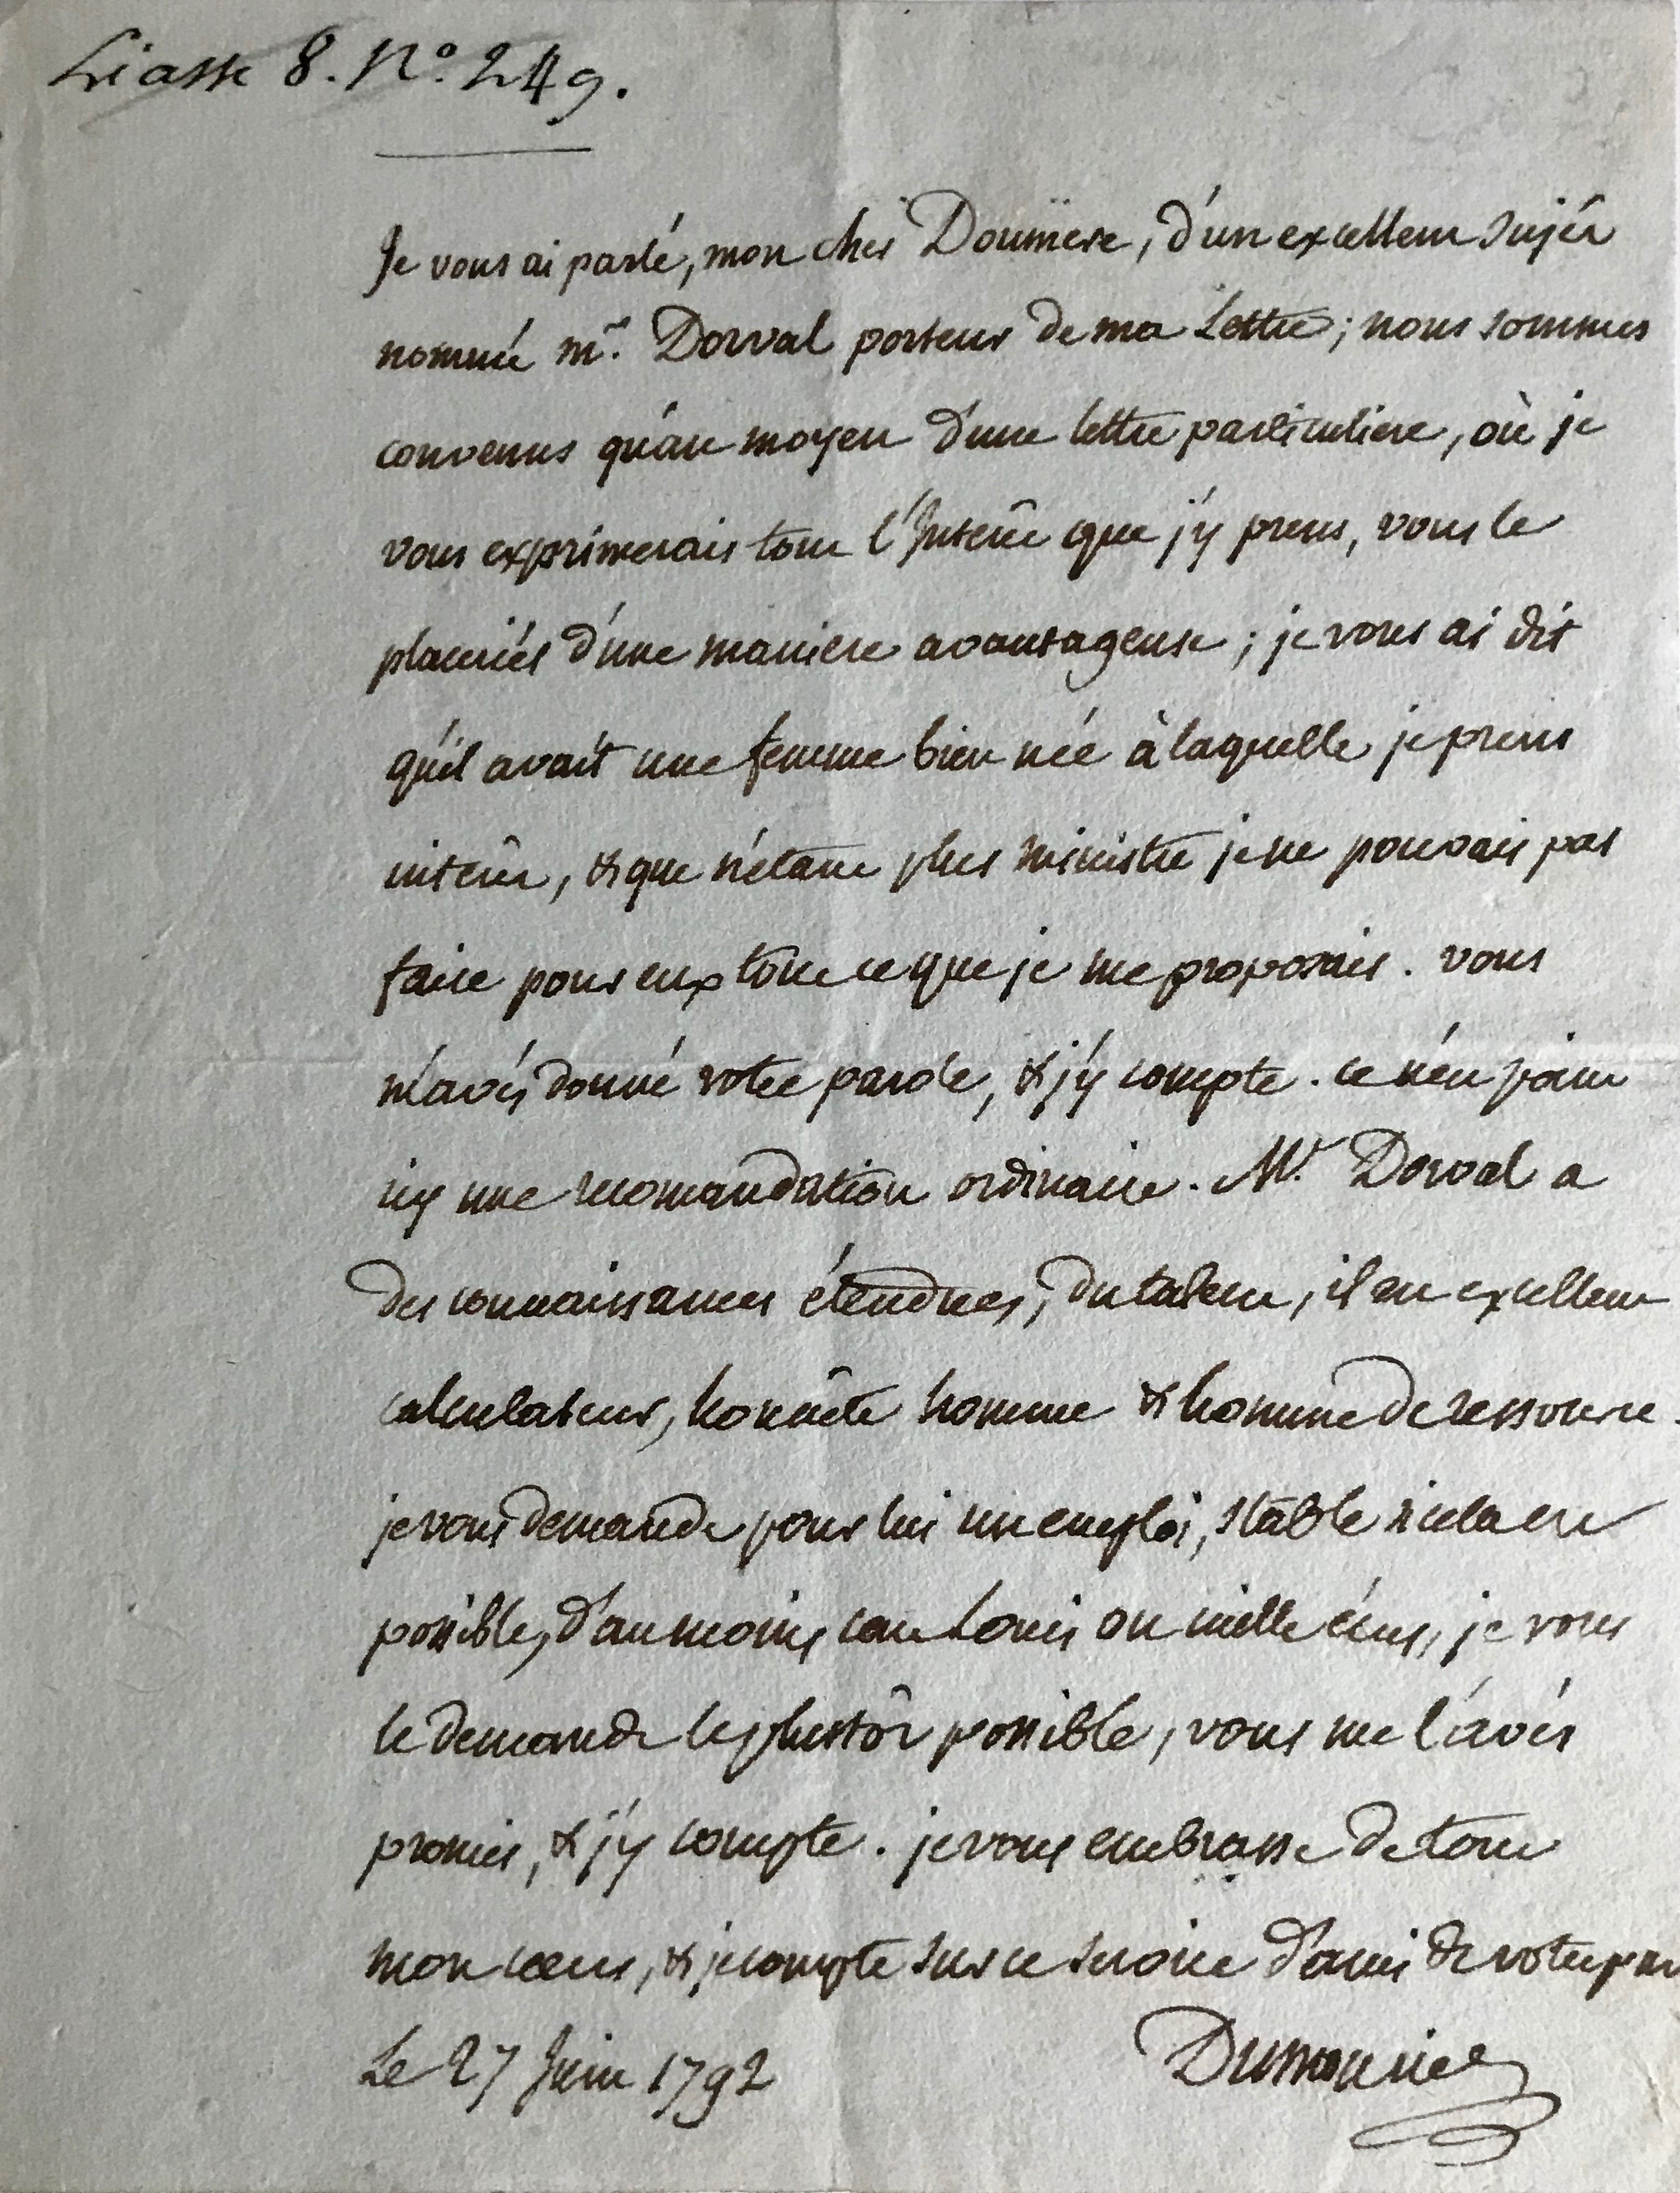 Liasse 8. N.° 249.
Je vous ai parlé, mon cher Doumere, d'un excellent sujèt
nommé mr. Dorval porteur de ma Lettre; nous sommes
convenus qu'au moyen d'une lettre particuliere, où je
vous exprimerais tout l'Interêt que j'y prens, vous le
placeriés d'une maniere avantageuse; je vous ai dit
qu'il avait une femme bien née à laquelle je prens
interêt, & que n'etant plus ministre je ne pouvais pas
faire pour eux tout ce que je me proposais. vous
m'avés donné votre parole, & j'y compte. ce n'est point
icy une recomandation ordinaire. Mr. Dorval a
des connaissances étendues, du talent, il est excellent
calculateur, honnête homme & homme de ressource.
je vous demande pour lui un emploi, stable si cela est
possible, d'au moins cent Louis ou mille écus, je vous
le demande le plustôt possible, vous me l'avés
promis, & j'y compte. je vous embrasse de tout
mon cœur, & je compte sur ce service d'ami de votre part
Le 27 Juin 1792 Dumouriez